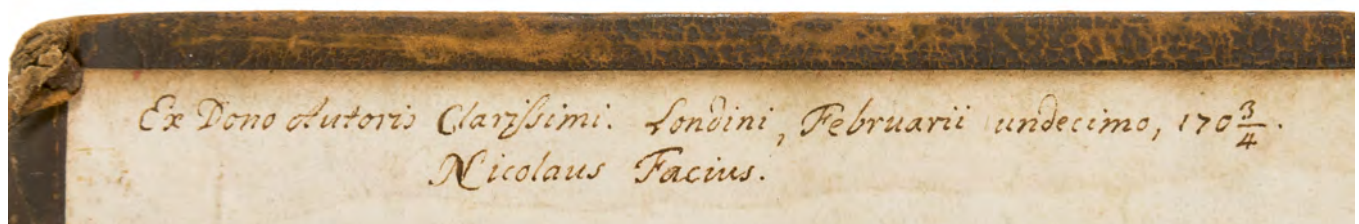 Ex Dono Autoris Clarissimi. Londini, Februarii undecimo, 170¾.
Nicolaus Facius.